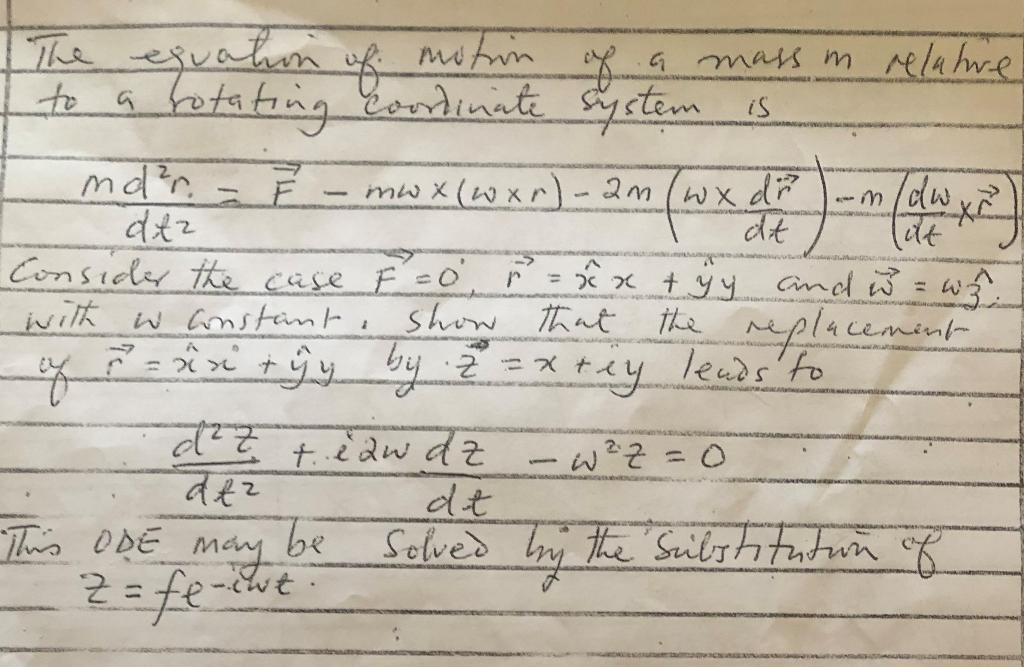 The equation of motion of a mass m relative
to a rotating coordinate system is
m d²r / dt² = F⃗ - mω×(ω×r) - 2m (ω× dr⃗/dt) - m (dω/dt × r⃗)
Consider the case F⃗ = 0, r⃗ = x̂x + ŷy and ω⃗ = ωẑ,
with ω constant. Show that the replacement
of r⃗ = x̂x + ŷy by z⃗ = x + iy leads to
d²z/dt² + i2ω dz/dt - ω²z = 0
This ODE may be solved by the substitution of
z = fe^-iωt.